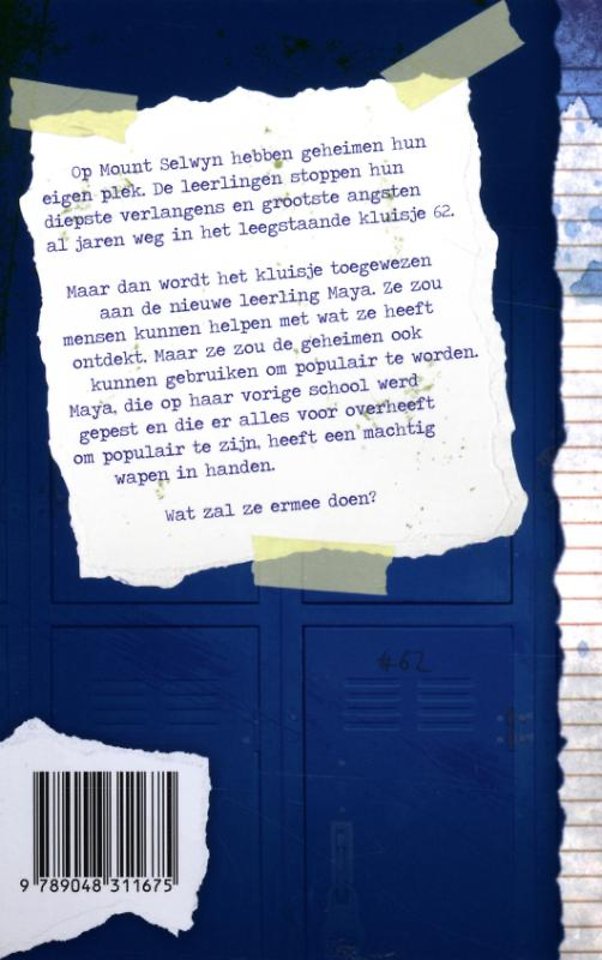 Op Mount Selwyn hebben geheimen hun
eigen plek. De leerlingen stoppen hun
diepste verlangens en grootste angsten
al jaren weg in het leegstaande kluisje 62.
Maar dan wordt het kluisje toegewezen
aan de nieuwe leerling Maya. Ze zou
mensen kunnen helpen met wat ze heeft
ontdekt. Maar ze zou de geheimen ook
kunnen gebruiken om populair te worden.
Maya, die op haar vorige school werd
gepest en die er alles voor overheeft
om populair te zijn, heeft een machtig
wapen in handen.
Wat zal ze ermee doen?
#62
9 789048 311675